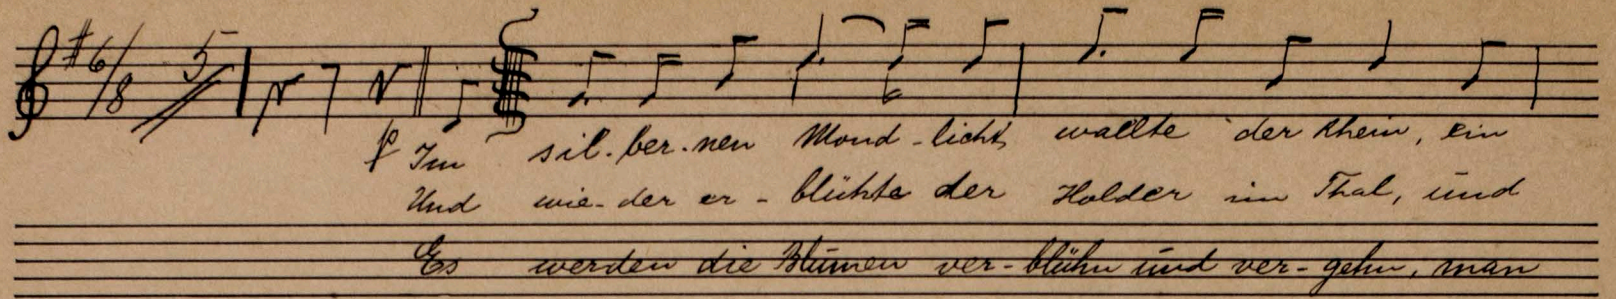 6/8 5
f Im sil-ber-nen Mond-licht wallte der Rhein, ein
Und wie-der er-blühte der Holder im Thal, und
Es werden die Blumen ver-blühn und ver-gehn, man